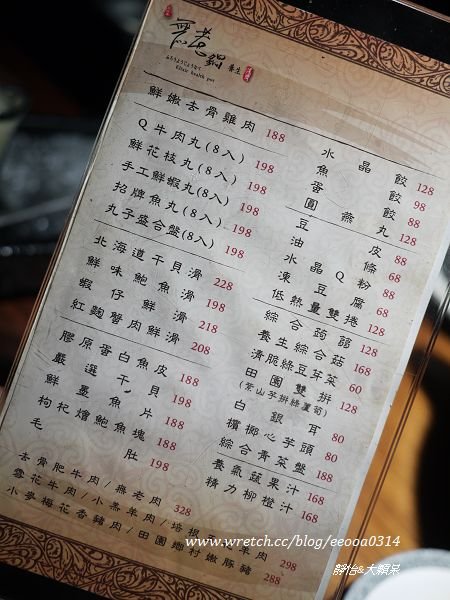 無老鍋 養生
Elixir health pot
鮮嫩去骨雞肉 188
Q牛肉丸(8入) 198
鮮花枝丸(8入) 198
手工鮮蝦丸(8入) 198
招牌魚丸(8入) 198
丸子盛合盤(8入) 198
北海道干貝滑 228
鮮味鮑魚滑 198
蝦仔鮮滑 218
紅麴蟹肉鮮滑 208
膠原蛋白魚皮 188
嚴選干貝 198
鮮墨魚片 188
枸杞燴鮑魚塊 188
毛肚 198
水晶餃 128
魚餃 98
蛋餃 88
圓燕丸 128
豆皮 88
油條 68
水晶Q粉 88
凍豆腐 68
低熱量雙捲 128
綜合蒟蒻
養生綜合菇 168
清脆綠豆芽菜 60
田園雙拼 128
(紫山芋拼綠蘆筍)
白銀耳 80
檳榔心芋頭 80
綜合青菜盤 188
養氣蔬果汁 168
精力柳橙汁 168
去骨肥牛肉/無老肉 328
雪花牛肉/小羔羊肉/培根羊肉 298
小夢梅花香豬肉/田園鄉村嫩豚豬 288
www.wretch.cc/blog/eeooa0314
靜怡&大顆呆